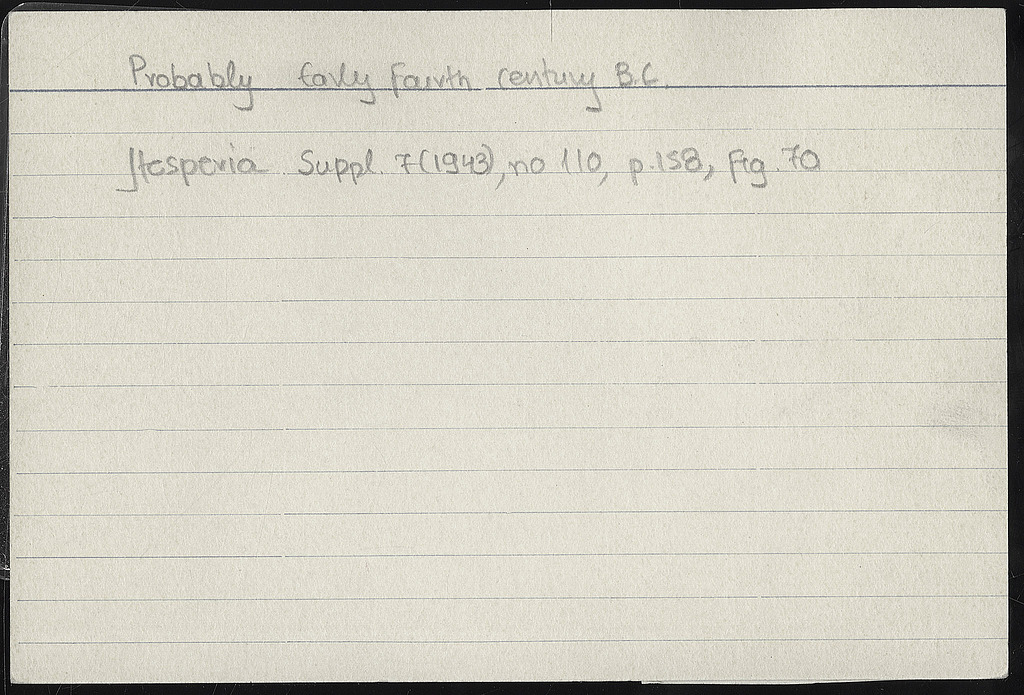 Probably Early Fourth century B.C.
Hesperia Suppl. 7 (1943), no 110, p. 158, fig. 70